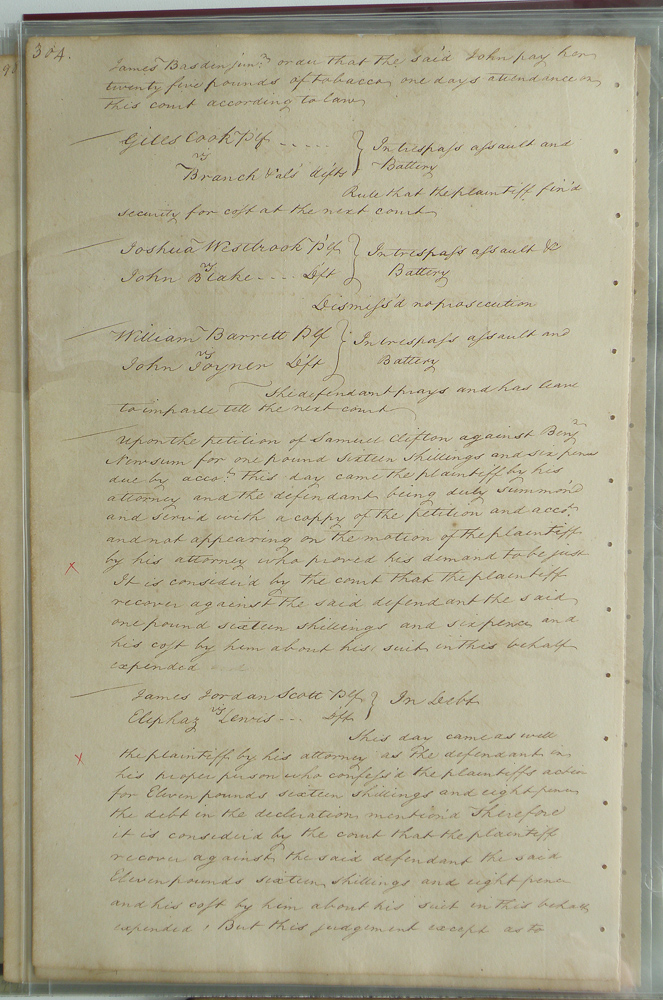 304.
James Basden junr. order that the said John pay her
twenty five pounds of tobacco, one days attendance on
this court according to law
Giles Cook Plf - - - - - } In trespass assault and
vs Battery
Branch &als defts
Rule that the plaintiff find
security for cost at the next court
Joshua Westbrook Plf } In trespass assault &
vs Battery
John Blake - - - - Dft
Dismiss'd no prosecution
William Barrett Plf } In trespass assault and
vs Battery
John Joyner Dft
The defendant prays and has leave
to imparle till the next court
Upon the petition of Samuel Clifton against Benja
Newsum for one pound sixteen shillings and six pence
due by acco.t this day came the plaintiff by his
attorney and the defendant being duly summon'd
and serv'd with a coppy of the petition and acco.t
and not appearing on the motion of the plaintiff
by his attorney who proved his demand to be just
It is consider'd by the court that the plaintiff
recover against the said defendant the said
one pound sixteen shillings and sixpence and
his cost by him about his suit in this behalf
expended
James Jordan Scott Plf } In Debt
vs
Eliphaz Lewis - - - Dft
This day came as well
the plaintiff by his attorney as the defendant in
his proper person who confess'd the plaintiffs action
for Eleven pounds sixteen shillings and eight pence
the debt in the decleration mention'd Therefore
it is consider'd by the court that the plaintiff
recover against the said defendant the said
Eleven pounds sixteen shillings and eight pence
and his cost by him about his suit in this behalf
expended, But this judgement except as to